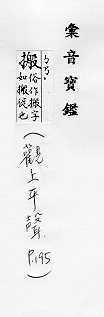 彙音寶鑑
搬
俗作搬子
如搬徙也
(觀上平聲 P.195)